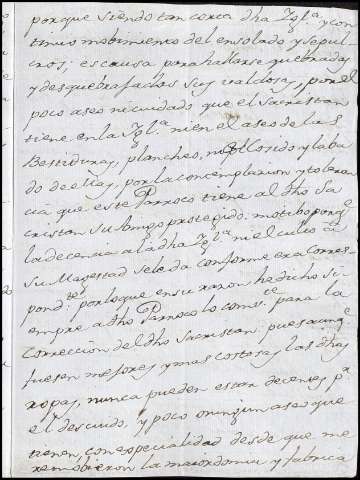 porque siendo tan corta dha Iglª. y con
tinuo mobimiento del ensolado y sepul
cros, es causa para hallarse quebradas
y desquebrafadas sus valdosas, por el
poco aseo ni cuidado que el Sacristan
tiene en la Iglª. ni en el aseo de las
Bestiduras, plancheo, ni Cosido y laba
do de ellas, por la contemplacion y toleran
cia que este Parroco tiene al dho Sa
cristan su Amigo protegido: motibo porqᵉ
la decencia a la dha Iglª. ni el culto a
su Magestad se le da conforme era Corres
pondᵗᵉ. por lo que en su razon he dicho si
empre a dho Parroco lo combᵗᵉ. para la
Correccion del dho Sacristan: pues aunqᵉ
fuesen mejores y mas costosas las dhas
ropas, nunca pueden estar decentes pª.
el descuido, y poco o ningun aseo que
tienen, con especialidad desde que me
remobieron la maiordomia y fabrica